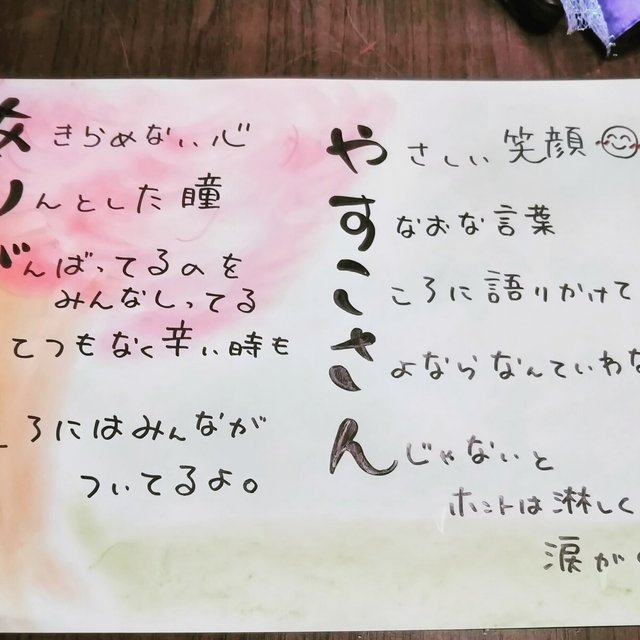 あきらめない心
りんとした瞳
がんばってるのを
みんなしってる
てつもなく辛い時も
ころにはみんなが
ついてるよ。
やさしい笑顔
すなおな言葉
こころに語りかけて
さよならなんていわな
んじゃないと
ホントは淋しく
涙が